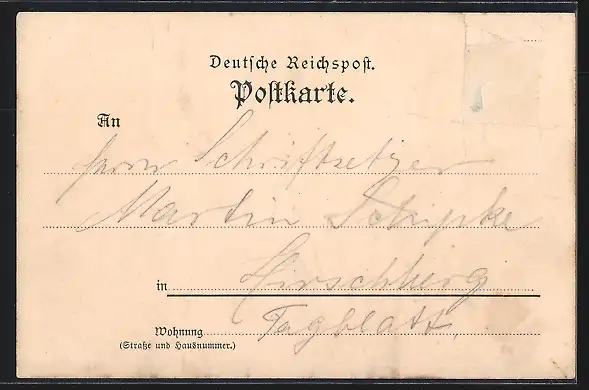 Deutsche Reichspost.
Postkarte.
An
Herrn Schriftsetzer
Martin Schipke
in Hirschberg
Wohnung Tagblatt.
(Straße und Hausnummer.)